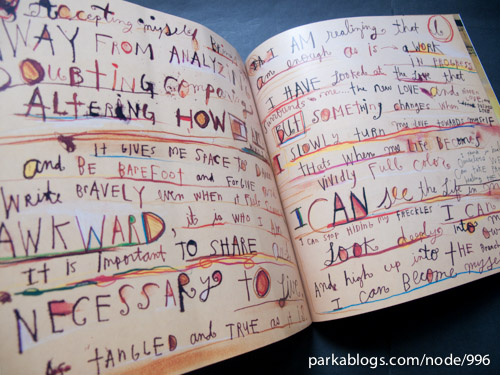 Accepting myself
WAY FROM ANALYZI
DOUBTING Compar
ALTERING HOW
IT GIVES ME SPACE TO
and BE BAREFOOT and FORGIVE
WRITE BRAVELY even WHEN it FEELS
AWKWARD, it is WHO I
It is Important TO SHARE
NECESSARY TO Live
As TANGLED and TRUE as it is
I AM realizing that I
am enough as is - a WORK
IN PROGRESS
I HAVE looked at the love that
surrounds me... the new LOVE and
BUT SOMETHING changes when
I slowly turn my LOVE TOWARDS myself
thats When my life Becomes
vividly Full Color.
I CAN see the life in
I CAN STOP HIDING my FRECKLES I CAN
look deeply into
And high up into THE
I can Become myself
parkablogs.com/node/996